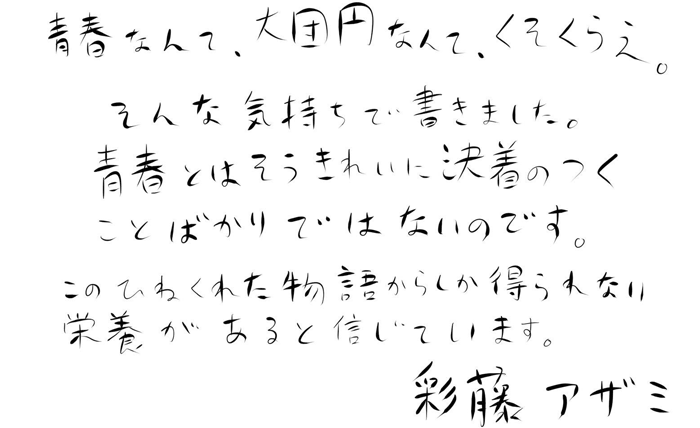 青春なんて、大団円なんて、くそくらえ。
そんな気持ちで書きました。
青春とはそうきれいに決着のつく
ことばかりではないのです。
このひねくれた物語からしか得られない
栄養があると信じています。
彩藤アザミ